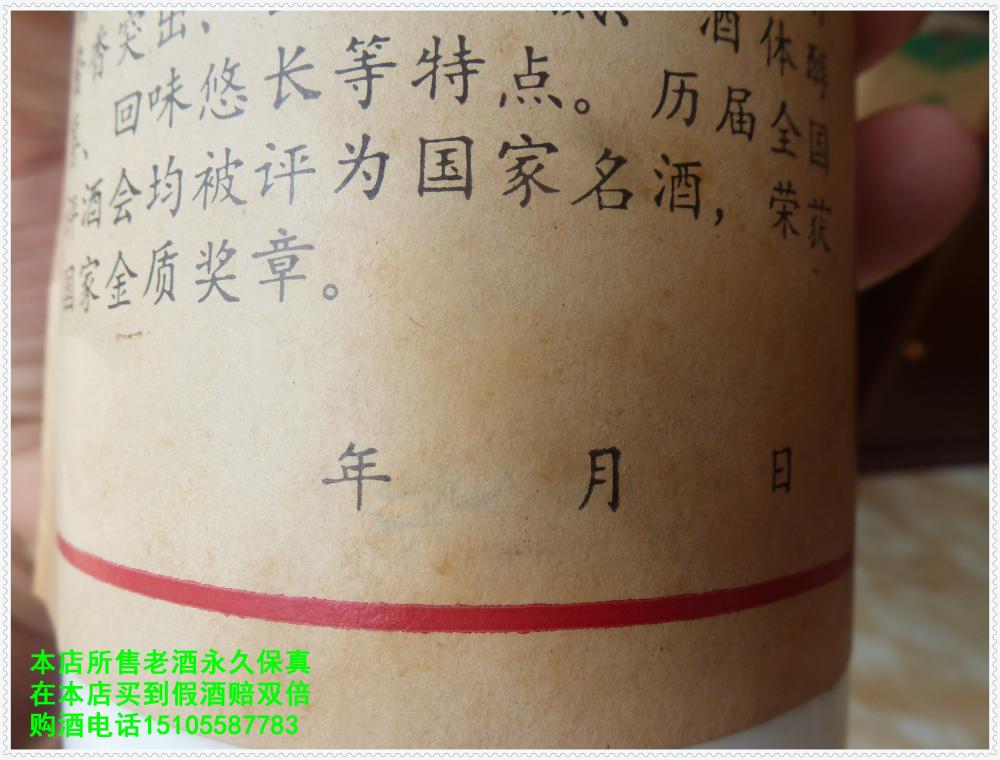 香突出、 酒体醇
回味悠长等特点。历届全国
酒会均被评为国家名酒，荣获
国家金质奖章。
年 月 日
本店所售老酒永久保真
在本店买到假酒赔双倍
购酒电话15105587783